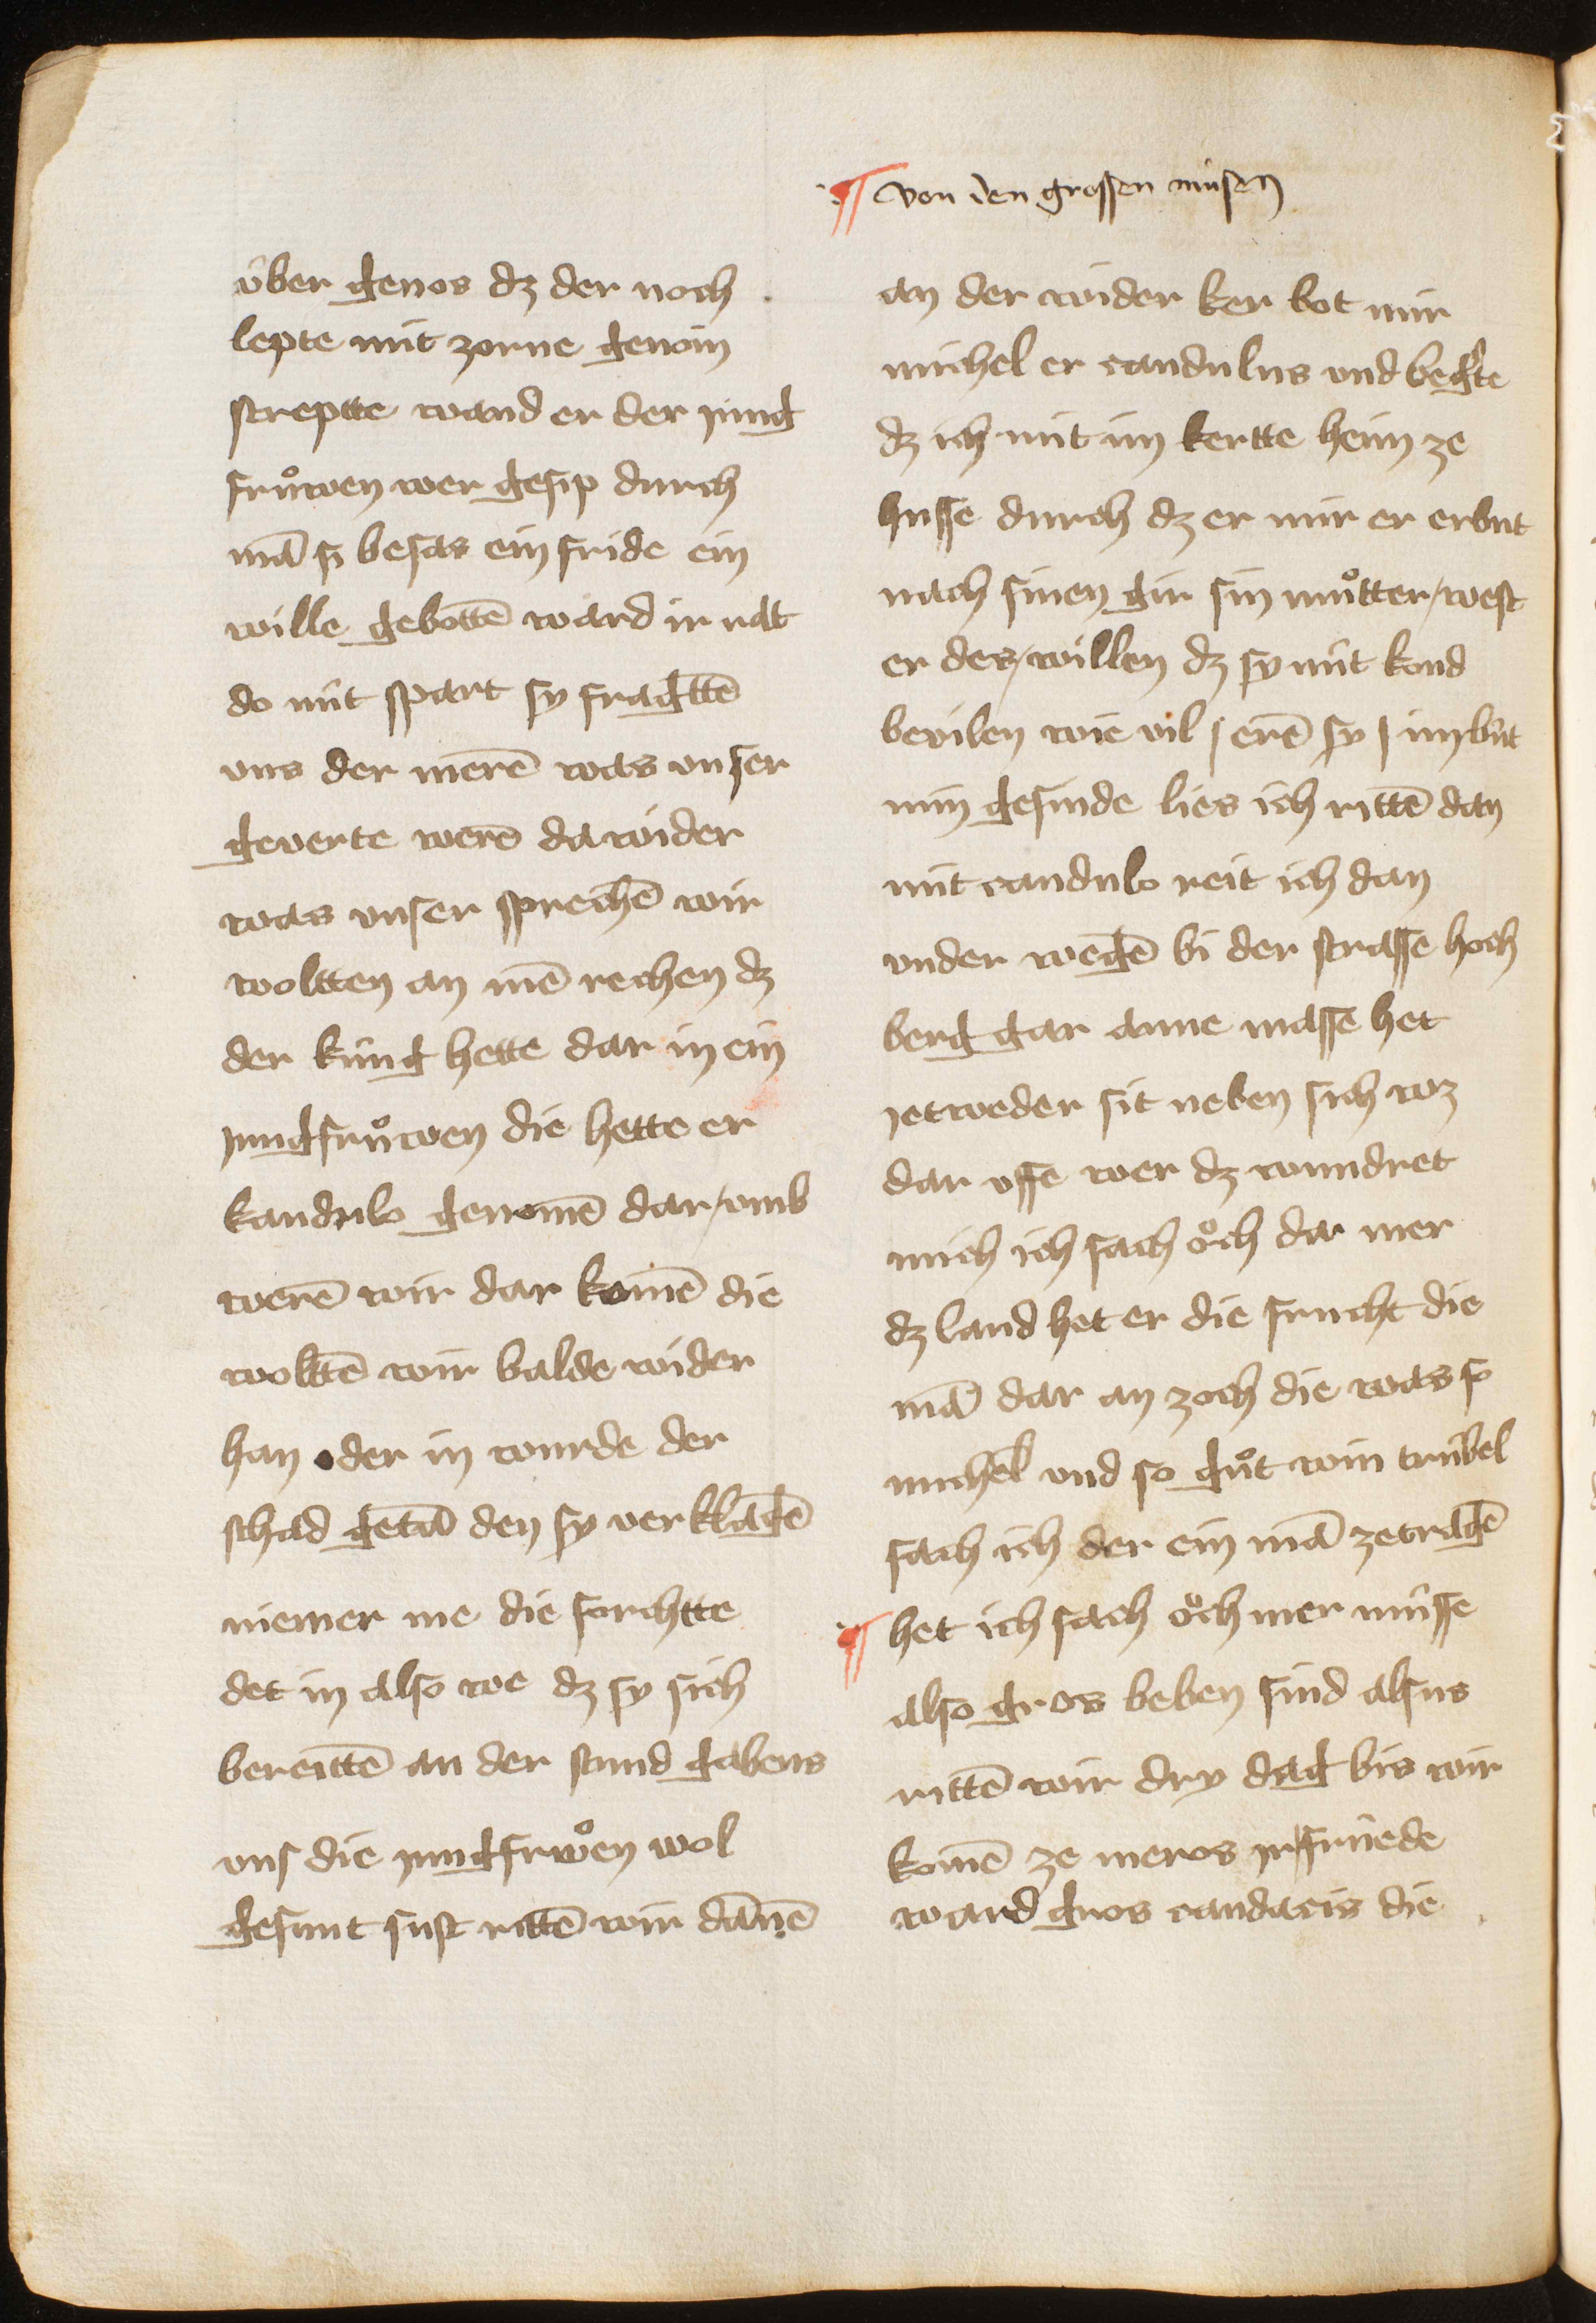 über genos dz der noch
lepte mit zorne gewin
streptte wand er der jung
frůwen wer gesip durch
mā si besas ein fride ein
wille gebottē ward ir rat
do mit spart sy fragttē
vns der merē was vnser
geverte werē da wider
was vnser sprechē wir
woltten an mē rechen dz
der küng hette dar in ein
jungfrůwen die hette er
kandulo genomē dar / vmb
werē wir dar komē die
wolttē wir balde wider
han oder in wurde der
schad getā den sy verklagē
niemer me die forchtte
det in also we dz sy sich
bereittē an der stund gabens
vns die jungfrwͦen wol
gesunt sust rittē wir dānē
¶ von den grossen müsen
an der wider ker bot mir
michel er candulus vnd begerte
dz ich mit im kertte heim ze
husse durch dz er mir er erbut
nach sinen gir sin můtter / west
er des / willen dz sy nüt kond
bevilen wie vil / erē sy / im bût
min gesinde lies ich rittē dan
mit candulo reit ich dan
vnder wegē bi der strasse hoch
berg gar anne masse het
jetweder sit neben sich wz
dar vffe wer dz wundret
mich ich sach oͧch da mer
dz land het er die frucht die
mā dar an zoch die was so
michel vnd so gůt win trúbel
sach ich der ein mā ze tragē
¶ het ich sach oͧch mer müsse
also gros beben sind alsus
rittē wir dry dag bis wir
komē ze meros jr fruede
ward gros candacis die